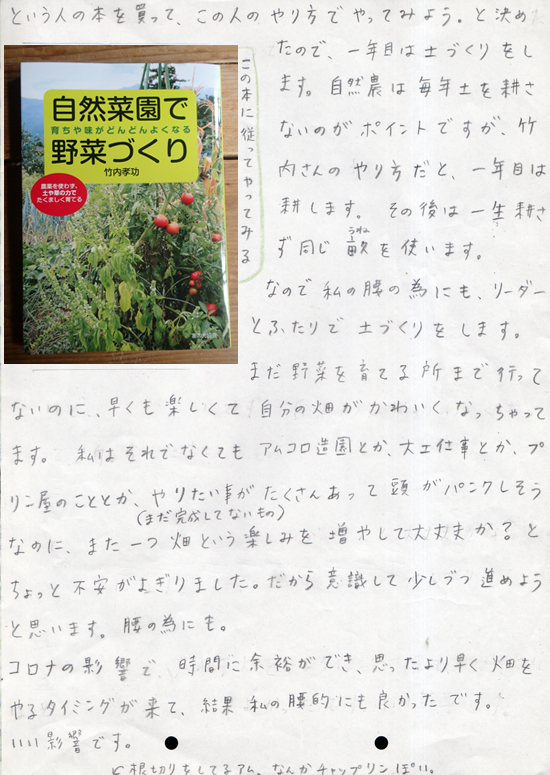 という人の本を買って、この人のやり方でやってみよう。と決め
たので、一年目は土づくりをし
ます。自然農は毎年土を耕さ
ないのがポイントですが、竹
内さんのやり方だと、一年目は
耕します。その後は一生耕さ
ず同じ畝を使います。
うね
なので私の腰の為にも、リーダー
とふたりで土づくりをします。
この本に従ってやってみる
自然菜園で
育ちや味がどんどんよくなる
野菜づくり
竹内孝功
農薬を使わず、
土や草の力で
たくましく育てる
まだ野菜を育てる所まで行って
ないのに、早くも楽しくて自分の畑がかわいくなっちゃって
ます。私はそれでなくてもアムコロ造園とか、大工仕事とか、プ
リン屋のこととか、やりたい事がたくさんあって頭がパンクしそう
(まだ完成してないもの)
なのに、また一つ畑という楽しみを増やして大丈夫か?と
ちょっと不安がよぎりました。だから意識して少しづつ進めよう
と思います。腰の為にも。
コロナの影響で、時間に余裕ができ、思ったより早く畑を
やるタイミングが来て、結果私の腰的にも良かったです。
いい影響です。
根切りをしてるアム。なんかチャップリンぽい。